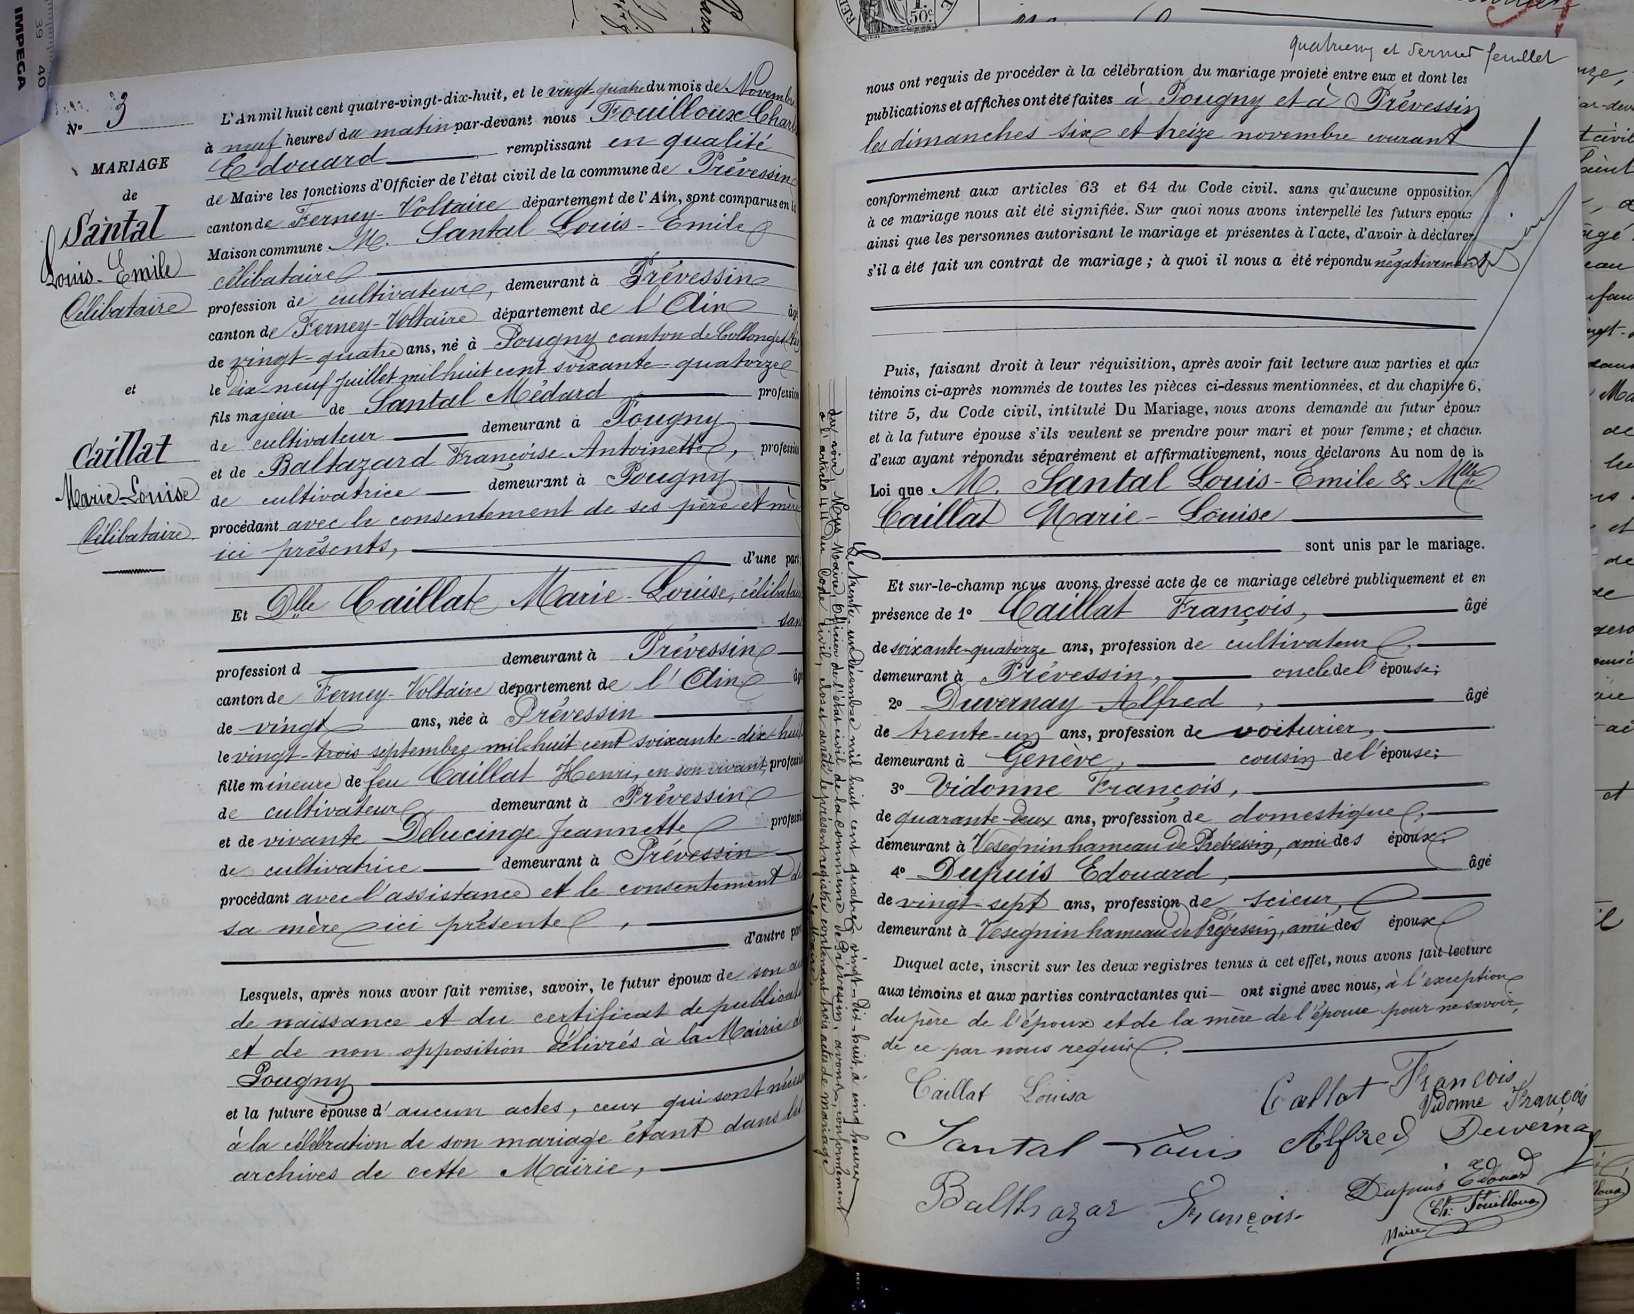 IMPEGA
39 40
N° 3
MARIAGE
de
Santal
Louis-Emile
Célibataire
et
Caillat
Marie-Louise
Célibataire
L'An mil huit cent quatre-vingt-dix-huit, et le vingt-quatre du mois de Novembre
à neuf heures du matin par-devant nous Fouilloux Charles
Edouard remplissant en qualité
de Maire les fonctions d'Officier de l'état civil de la commune de Prévessin
canton de Ferney-Voltaire département de l'Ain, sont comparus en la
Maison commune M. Santal Louis-Emile
célibataire
profession de cultivateur, demeurant à Prévessin
canton de Ferney-Voltaire département de l'Ain âgé
de vingt-quatre ans, né à Pougny canton de Collonges
le dix-neuf juillet mil huit cent soixante-quatorze
fils majeur de Santal Médard profession
de cultivateur demeurant à Pougny
et de Baltazard Françoise Antoinette, profession
de cultivatrice demeurant à Pougny
procédant avec le consentement de ses père et mère
ici présents, d'une part
Et Dlle Caillat Marie-Louise, célibataire
sans
profession d demeurant à Prévessin
canton de Ferney-Voltaire département de l'Ain âgé
de vingt ans, née à Prévessin
le vingt-trois septembre mil huit cent soixante-dix-huit
fille mineure de feu Caillat Henri, en son vivant, profession
de cultivateur demeurant à Prévessin
et de vivante Delucinge Jeannette profession
de cultivatrice demeurant à Prévessin
procédant avec l'assistance et le consentement de
sa mère ici présente,
d'autre part
Lesquels, après nous avoir fait remise, savoir, le futur époux de son acte
de naissance et du certificat de publication
et de non opposition délivrés à la Mairie de
Pougny
et la future épouse d'aucun actes, ceux qui sont nécess
à la célébration de son mariage étant dans les
archives de cette Mairie,
quatrième et dernier feuillet
nous ont requis de procéder à la célébration du mariage projeté entre eux et dont les
publications et affiches ont été faites à Pougny et à Prévessin
les dimanches six et treize novembre courant
conformément aux articles 63 et 64 du Code civil. sans qu'aucune opposition
à ce mariage nous ait été signifiée. Sur quoi nous avons interpellé les futurs époux
ainsi que les personnes autorisant le mariage et présentes à l'acte, d'avoir à déclarer
s'il a été fait un contrat de mariage ; à quoi il nous a été répondu négativement
Puis, faisant droit à leur réquisition, après avoir fait lecture aux parties et aux
témoins ci-après nommés de toutes les pièces ci-dessus mentionnées, et du chapitre 6,
titre 5, du Code civil, intitulé Du Mariage, nous avons demandé au futur époux
et à la future épouse s'ils veulent se prendre pour mari et pour femme ; et chacun
d'eux ayant répondu séparément et affirmativement, nous déclarons Au nom de la
Loi que M. Santal Louis-Emile & Melle
Caillat Marie-Louise
sont unis par le mariage.
Et sur-le-champ nous avons dressé acte de ce mariage célébré publiquement et en
présence de 1° Caillat François, âgé
de soixante-quatorze ans, profession de cultivateur,
demeurant à Prévessin, oncle de l'épouse;
2° Duvernay Alfred, âgé
de trente-un ans, profession de voiturier,
demeurant à Genève, cousin de l'épouse;
3° Vidonne François,
de quarante-deux ans, profession de domestique,
demeurant à Vesegnin hameau de Prévessin, ami des époux;
4° Dupuis Edouard, âgé
de vingt-sept ans, profession de scieur,
demeurant à Vesegnin hameau de Prévessin, ami des époux
Duquel acte, inscrit sur les deux registres tenus à cet effet, nous avons fait lecture
aux témoins et aux parties contractantes qui ont signé avec nous, à l'exception
du père de l'époux et de la mère de l'épouse pour ne savoir,
de ce par nous requis.
Caillat Louisa
Caillat François
Vidonne François
Santal Louis Alfred Duvernay
Balthazar Françoise
Dupuis Edouard
Ch. Fouilloux
Maire
Le trente-un décembre mil huit cent quatre-vingt-dix-huit, à cinq heures
du soir, Nous, Maire, officier de l'état civil de la commune de Prévessin, avons, conformément
à l'article 44 du Code civil, clos et arrêté le présent registre contenant trois actes de mariage
Le Maire,